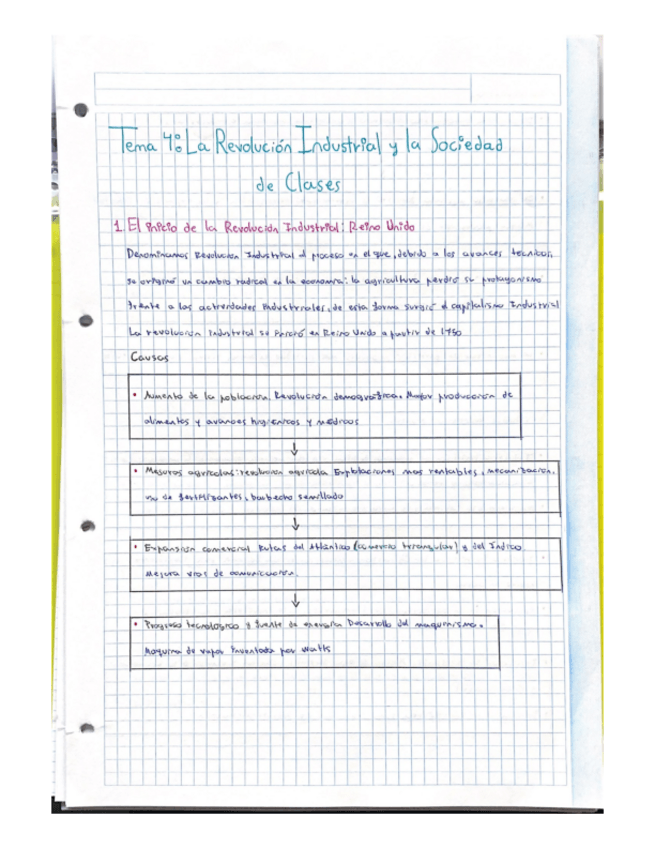 Tema 4: La Revolución Industrial y la Sociedad
de Clases
1. El inicio de la Revolución Industrial: Reino Unido
Denominamos Revolución Industrial al proceso en el que, debido a los avances técnicos,
se originó un cambio radical en la economía: la agricultura perdió su protagonismo
frente a las actividades industriales, de esta forma surgió el capitalismo Industrial
La revolución industrial se inició en Reino Unido a partir de 1750
Causas
• Aumento de la población. Revolución demográfica. Mayor producción de
alimentos y avances higiénicos y médicos
↓
• Mejoras agrícolas: revolución agrícola Explotaciones mas rentables, mecanización,
uso de fertilizantes, barbecho semillado
↓
• Expansión comercial Rutas del Atlántico (comercio triangular) y del Índico
Mejora vías de comunicación.
↓
• Progreso tecnológico y fuente de energía Desarrollo del maquinismo.
Maquina de vapor inventada por Watts